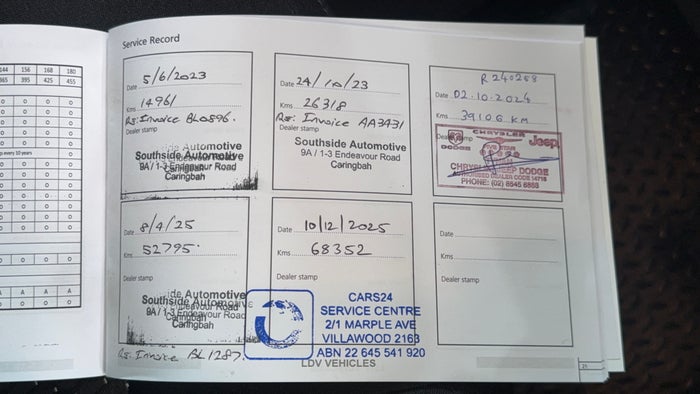 Service Record
144 156 168 180
365 395 425 455
5/6/2023
Date
Kms 14961
Re: Invoice BL0896.
Dealer stamp
Southside Automotive
9A / 1-3 Endeavour Road
Caringbah
Date 24/10/23
Kms 26318
Re: Invoice AA3431
Dealer stamp
Southside Automotive
9A / 1-3 Endeavour Road
Caringbah
R240258
Date 02.10.2024
Kms 39106 KM
CHRYSLER
Jeep
DODGE
FIVE STAR
JEEP DODGE
AUTHORISED DEALER CODE
PHONE: (02) 8545 8868
8/4/25
Date
Kms 52795.
Dealer stamp
Southside Automotive
9A / 1-3 Endeavour Road
Caringbah
Re: Invoice BL1287.
Date 10/12/2025
Kms 68352
Dealer stamp
CARS24
SERVICE CENTRE
2/1 MARPLE AVE
VILLAWOOD 2163
ABN 22 645 541 920
Date
Kms
Dealer stamp
LDV VEHICLES